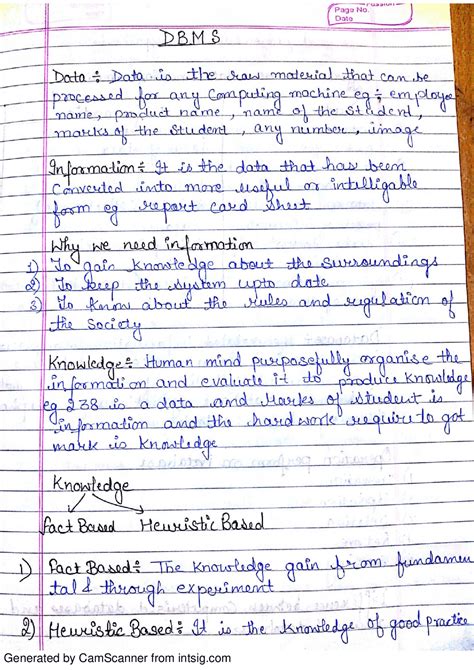 Page No.
Date
DBMS
Data ÷ Data is the raw material that can be
processed for any Computing machine eg ÷ employee
name, product name, name of the student,
marks of the student, any number, image
Information ÷ It is the data that has been
Converted into more useful or intelligable
form eg report card sheet
Why we need information
1) To gain knowledge about the surroundings
2) To keep the system upto date
3) To know about the rules and regulation of
the Society
Knowledge ÷ Human mind purposefully organise the
information and evaluate it to produce knowledge
eg 238 is a data and Marks of student is
information and the hard work require to got
mark is knowledge
Knowledge
Fact Based Heuristic Based
1) Fact Based ÷ The knowledge gain from fundamen
tal & through experiment
2) Heuristic Based ÷ It is the knowledge of good practice
Generated by CamScanner from intsig.com